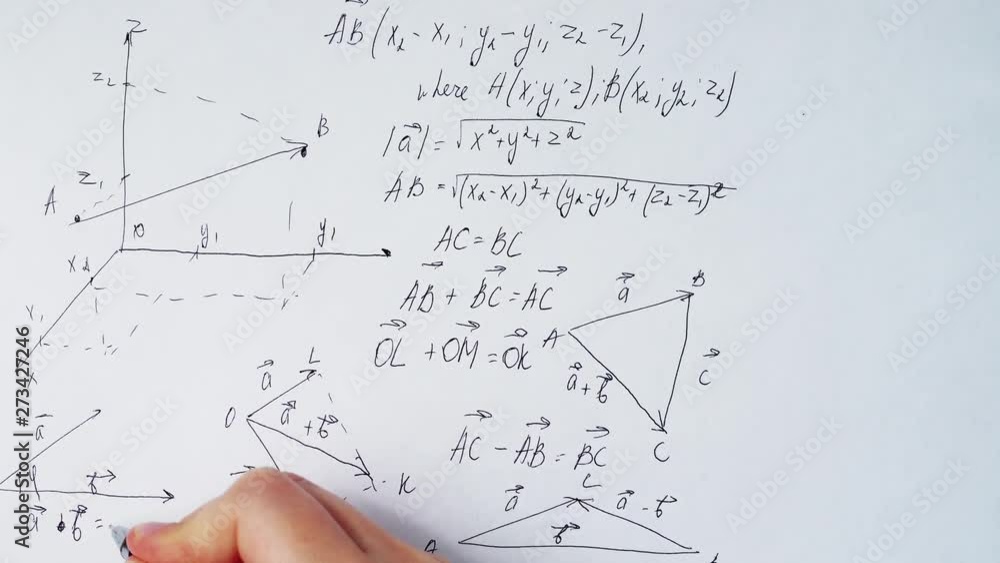 AB (x₂ - x₁; y₂ - y₁; z₂ - z₁),
where A(x; y; z); B(x₂; y₂; z₂)
|a| = √x²+y²+z²
AB = √(x₂-x₁)²+(y₂-y₁)²+(z₂-z₁)²
AC = BC
AB + BC = AC
OL + OM = OK
AC - AB = BC
z
z₂
B
z₁
A
y₁
y₁
x₂
x₁
a
B
A
c
a+b
C
L
a
O
a+b
K
a
b
b =
L
a
a - b
b
Adobe Stock | #273427246